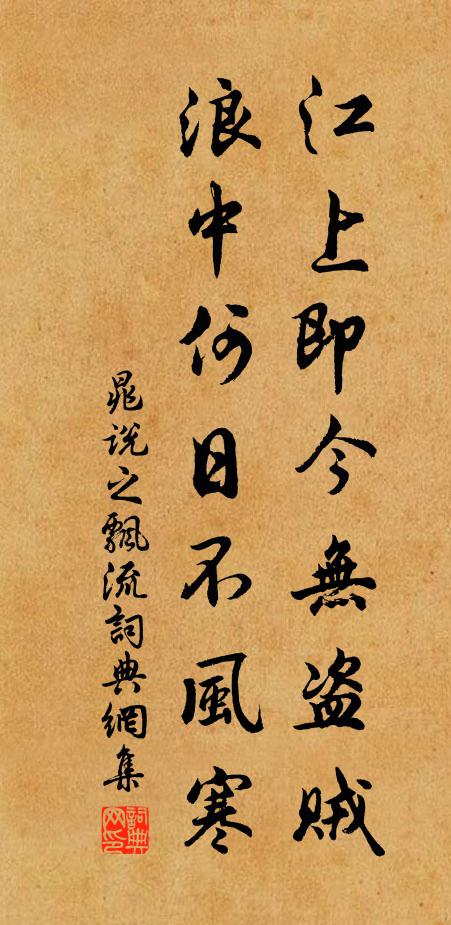 江上即今無盜賊
浪中何日不風寒
晁說之飄流詞典網集
詞典网印